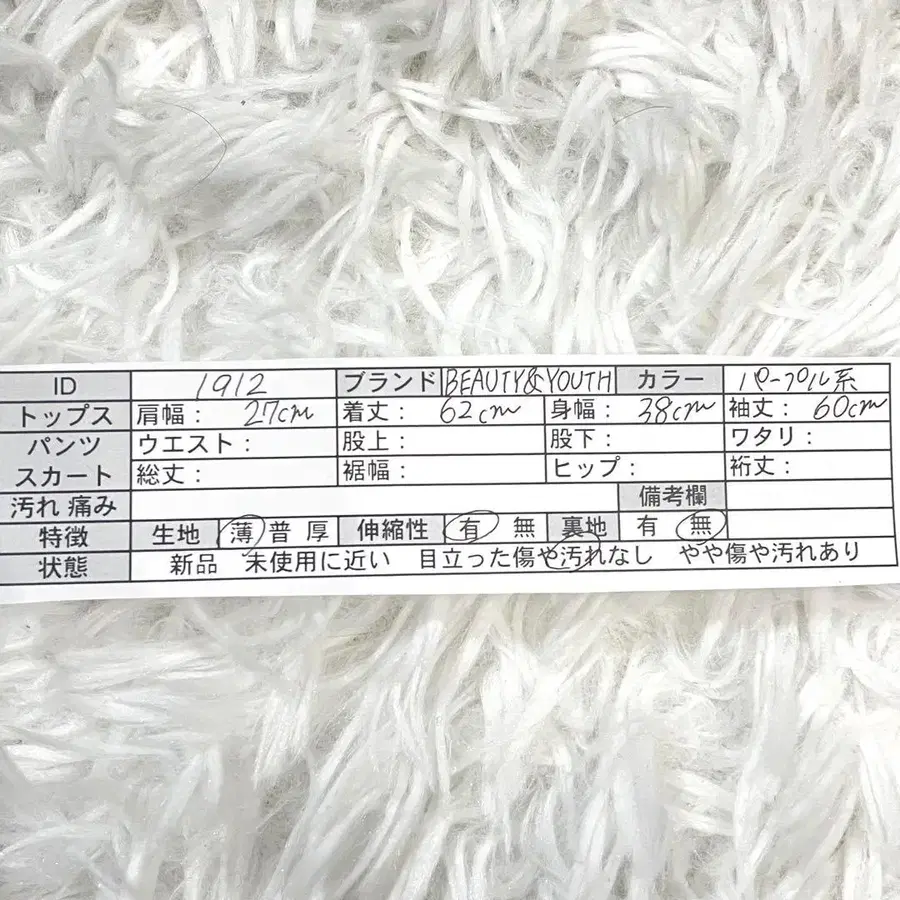 ID 1912 ブランド BEAUTY&YOUTH カラー パープル系
トップス 肩幅: 27cm 着丈: 62cm 身幅: 38cm 袖丈: 60cm
パンツ ウエスト: 股上: 股下: ワタリ:
スカート 総丈: 裾幅: ヒップ: 裄丈:
汚れ 痛み 備考欄
特徴 生地 薄 普 厚 伸縮性 有 無 裏地 有 無
状態 新品 未使用に近い 目立った傷や汚れなし やや傷や汚れあり